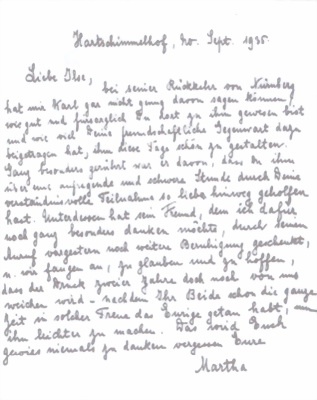 Hartschimmelhof, 20. Sept. 1935.
Liebe Ilse,
bei seiner Rückkehr von Nürnberg
hat mir Karl gar nicht genug davon sagen können,
wie gut und fürsorglich Du zu ihm gewesen bist
und wie viel Deine freundschaftliche Gegenwart dazu
beigetragen hat, ihm diese Tage schön zu gestalten.
Ganz besonders gerührt war er davon, dass Du ihm
über eine aufregende und schwere Stunde durch Deine
verständnisvolle Teilnahme so liebe hinweg geholfen
hast. Unterdessen hat sein Freund, dem ich dafür
noch ganz besonders danken möchte, durch seinen
Anruf vorgestern noch weitere Beruhigung geschenkt,
u. wir fangen an, zu glauben und zu hoffen,
dass der Druck zweier Jahre doch noch von uns
weichen wird – nachdem Ihr Beide schon die ganze
Zeit in solcher Treue das Eurige getan habt, —
ihn leichter zu machen. Das wird Euch
gewiss niemals zu danken vergessen Eure
Martha